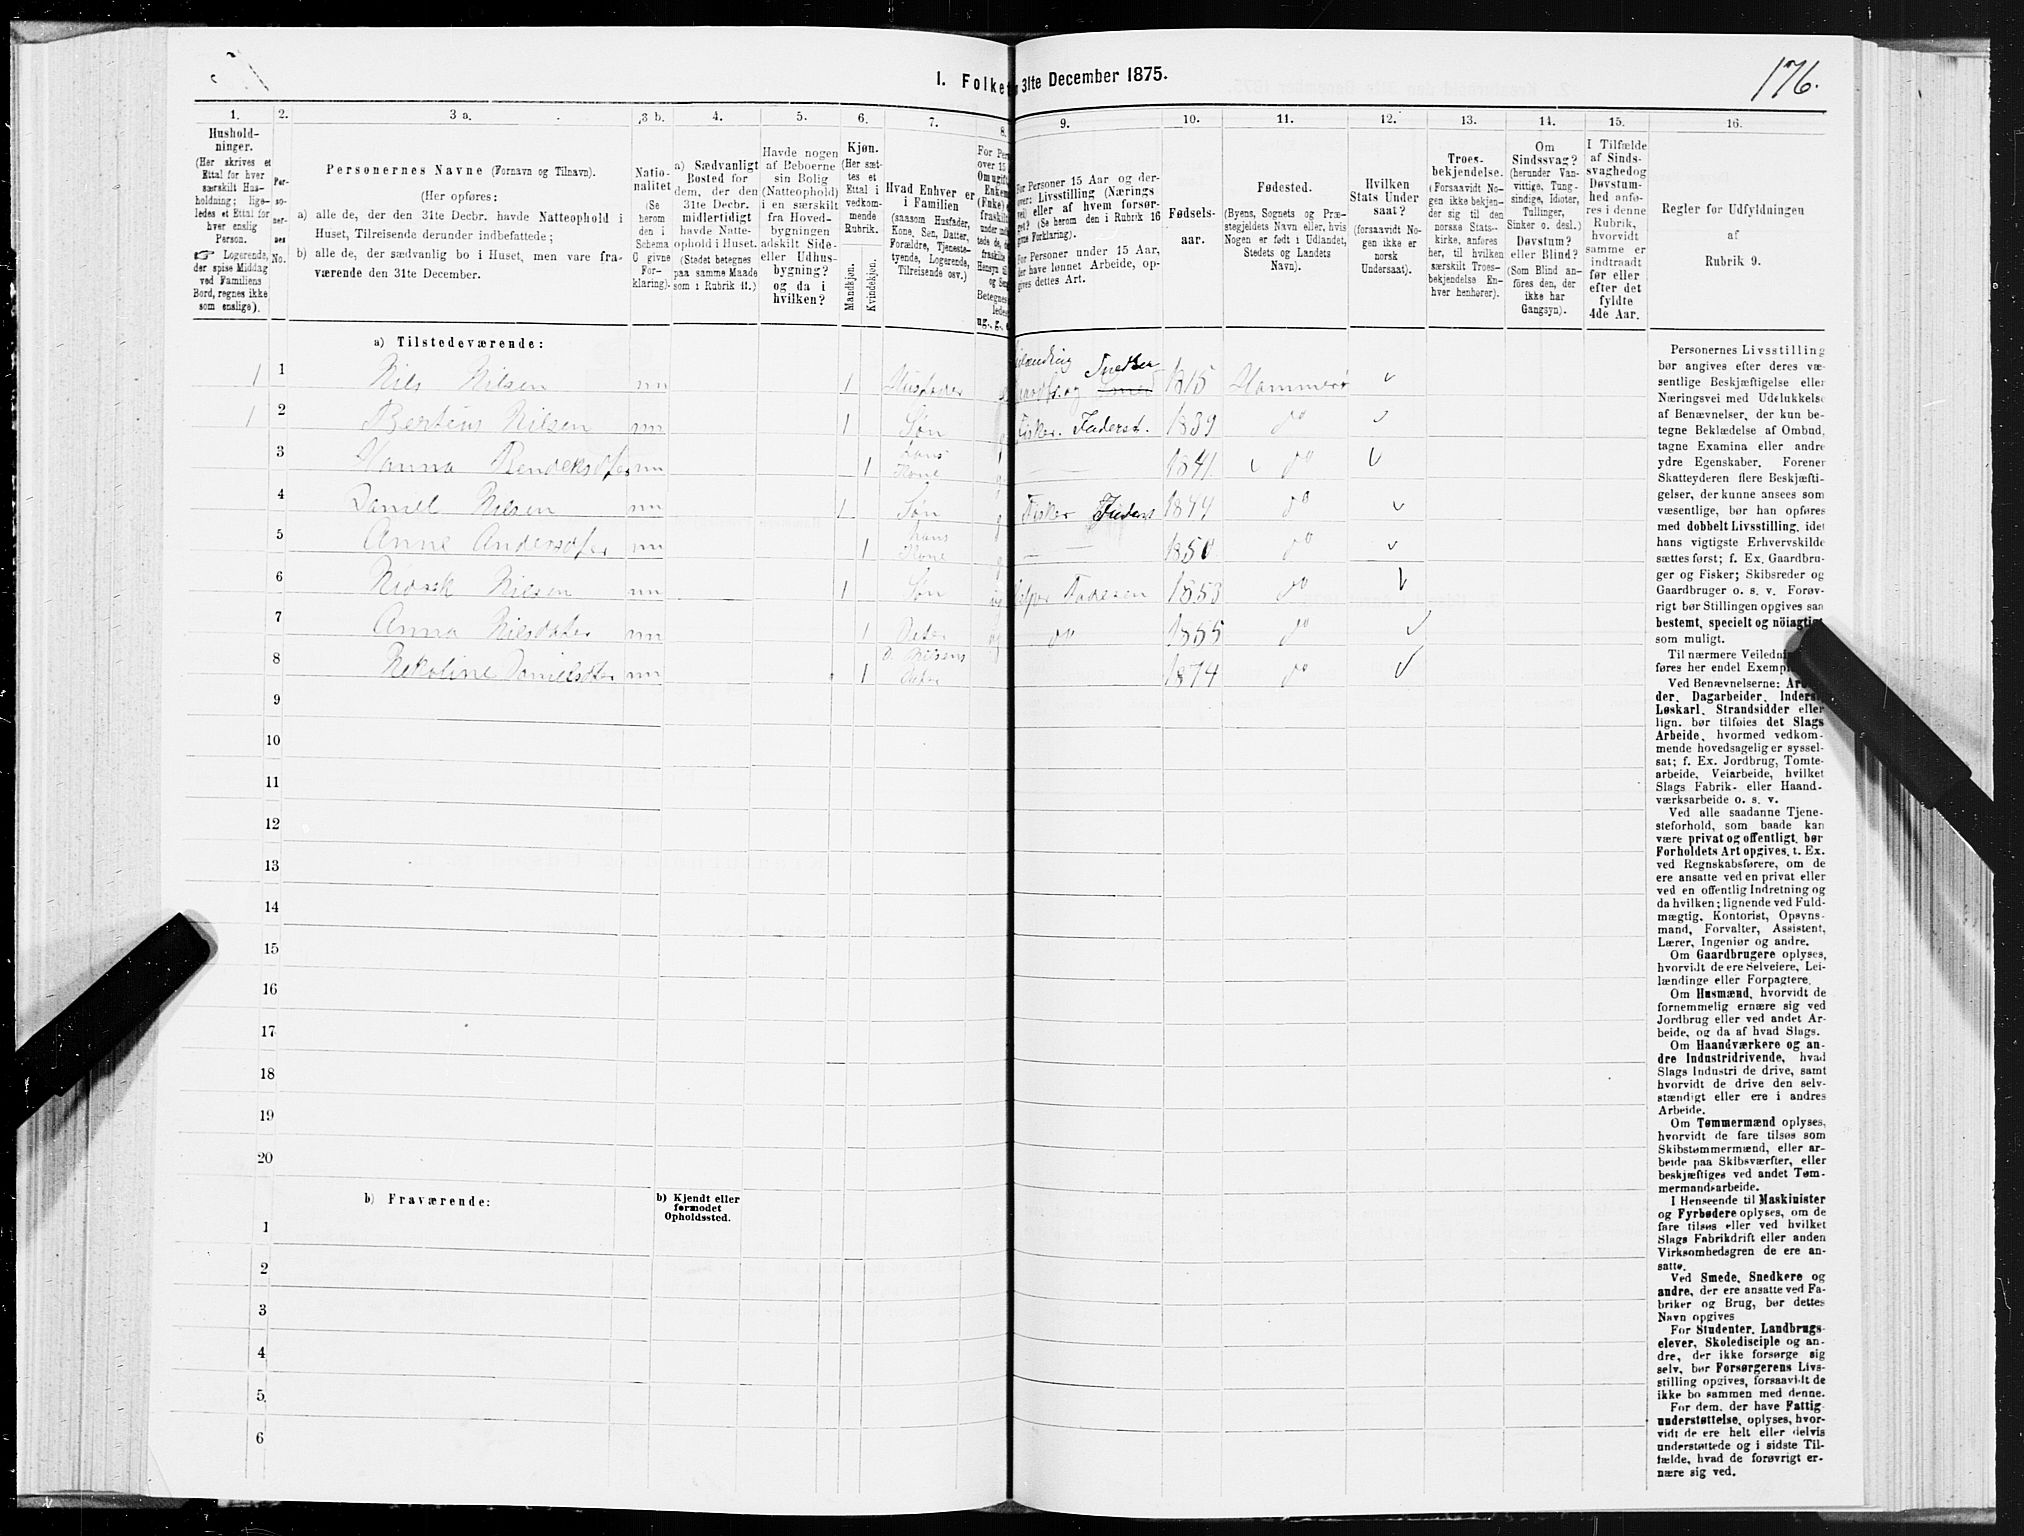 1. Folke 31te December 1875.
176.
1. 2. 3 a. 3 b. 4. 5. 6. 7. 8. 9. 10. 11. 12. 13. 14. 15. 16.
Hushold-
ninger.
(Her skrives et
Ettal for hver
særskilt Hus-
holdning; lige-
ledes et Ettal for
hver enslig
Person.
☞ Logerende,
der spise Middag
ved Familiens
Bord, regnes ikke
som enslige).
Per-
so-
ner-
nes
No.
Personernes Navne (Fornavn og Tilnavn).
(Her opføres:
a) alle de, der den 31te Decbr. havde Natteophold i
Huset, Tilreisende derunder indbefattede;
b) alle de, der sædvanlig bo i Huset, men vare fra-
værende den 31te December.
Natio-
nalitet
(Se
herom
den i
Schema
C givne
For-
klaring).
a) Sædvanligt
Bosted for
dem, der den
31te Decbr.
midlertidigt
havde Natte-
ophold i Huset.
(Stedet betegnes
paa samme Maade
som i Rubrik 11.)
Havde nogen
af Beboerne
sin Bolig
(Natteophold)
i en særskilt
fra Hoved-
bygningen
adskilt Side-
eller Udhus-
bygning?
og da i
hvilken?
Kjøn.
(Her sæt-
tes et
Ettal i
vedkom-
mende
Rubrik.
Mandkjøn.
Kvindekjøn.
Hvad Enhver er
i Familien
(saasom Husfader,
Kone, Søn, Datter,
Forældre, Tjeneste-
tyende, Logerende,
Tilreisende osv.)
For Personer 15 Aar og der-
over: Livsstilling (Nærings
vei) eller af hvem forsør-
get? (Se herom den i Rubrik 16
givne Forklaring).
For Personer under 15 Aar,
der have lønnet Arbeide, op-
gives dettes Art.
Fødsels-
aar.
Fødested.
(Byens, Sognets og Præ-
stegjeldets Navn eller, hvis
Nogen er født i Udlandet,
Stedets og Landets
Navn).
Hvilken
Stats Under
saat?
(forsaavidt No-
gen ikke er
norsk
Undersaat).
Troes-
bekjendelse.
(Forsaavidt No-
gen ikke bekjen-
der sig til den
norske Stats-
kirke, anføres
her, til hvilken
særskilt Troes-
bekjendelse En-
hver henhører).
Om
Sindssvag?
(herunder Van-
vittige, Tung-
sindige, Idioter,
Tullinger,
Sinker o. desl.)
Døvstum?
eller Blind?
(Som Blind an-
føres den, der
ikke har
Gangsyn).
I Tilfælde
af Sinds-
svaghed og
Døvstum-
hed anfø-
res i denne
Rubrik,
hvorvidt
samme er
indtraadt
før eller
efter det
fyldte
4de Aar.
Regler for Udfyldningen
af
Rubrik 9.
a) Tilstedeværende:
1 1 Nils Nilsen nn 1 Husfader 1815 Hammerø
1 2 Bertius Nilsen nn 1 Søn Fisker. Faderst. 1839 do
3 nn 1 hans Kone 1841. do
4 Daniel Nilsen nn 1 Søn Fisker 1844 do
5 Anne Andersdter nn 1 hans Kone 1850 do
6 Nilsen nn 1 Søn 1853 do
7 Anna Nilsdater nn 1 Datter do 1855 do
8 Danielsdter nn 1 D. Nilsens Datter 1874 do
9
10
11
12
13
14
15
16
17
18
19
20
b) Fraværende:
b) Kjendt eller
formodet
Opholdssted.
1
2
3
4
5
6
Personernes Livsstilling
bør angives efter deres væ-
sentlige Beskjæftigelse eller
Næringsvei med Udelukkelse
af Benævnelser, der kun be-
tegne Beklædelse af Ombud,
tagne Examina eller andre
ydre Egenskaber. Forener
Skatteyderen flere Beskjæfti-
gelser, der kunne ansees som
væsentlige, bør han opføres
med dobbelt Livsstilling, idet
hans vigtigste Erhvervskilde
sættes først; f. Ex. Gaardbru-
ger og Fisker; Skibsreder og
Gaardbruger o. s. v. Forøv-
rigt bør Stillingen opgives saa
bestemt, specielt og nöiagtigt
som muligt.
Til nærmere Veiledning
føres her endel Exempler
Ved Benævnelserne: Arbei-
der, Dagarbeider, Inderst,
Løskarl, Strandsidder eller
lign. bør tilføies det Slags
Arbeide, hvormed vedkom-
mende hovedsagelig er syssel-
sat; f. Ex. Jordbrug, Tomte-
arbeide, Veiarbeide, hvilket
Slags Fabrik- eller Haand-
værksarbeide o. s. v.
Ved alle saadanne Tjene-
steforhold, som baade kan
være privat og offentligt, bør
Forholdets Art opgives, t. Ex.
ved Regnskabsførere, om de
ere ansatte ved en privat eller
ved en offentlig Indretning og
da hvilken; lignende ved Fuld-
mægtig, Kontorist, Opsyns-
mand, Forvalter, Assistent,
Lærer, Ingeniør og andre.
Om Gaardbrugere oplyses,
hvorvidt de ere Selveiere, Lei-
lændinge eller Forpagtere.
Om Husmænd, hvorvidt de
fornemmelig ernære sig ved
Jordbrug eller ved andet Ar-
beide, og da af hvad Slags.
Om Haandværkere og an-
dre Industridrivende, hvad
Slags Industri de drive, samt
hvorvidt de drive den selv-
stændigt eller ere i andres
Arbeide.
Om Tømmermænd oplyses,
hvorvidt de fare tilsøs som
Skibstømmermænd, eller ar-
beide paa Skibsværfter, eller
beskjæftiges ved andet Tøm-
mermandsarbeide.
I Henseende til Maskinister
og Fyrbødere oplyses, om de
fare tilsøs eller ved hvilket
Slags Fabrikdrift eller anden
Virksomhedsgren de ere an-
satte.
Ved Smede, Snedkere og
andre, der ere ansatte ved Fa-
briker og Brug, bør dettes
Navn opgives
For Studenter, Landbrugs-
elever, Skoledisciple og an-
dre, der ikke forsørge sig
selv, bør Forsørgerens Livs-
stilling opgives, forsaavidt de
ikke bo sammen med denne.
For dem, der have Fattig
understøttelse, oplyses, hvor-
vidt de ere helt eller delvis
understøttede og i sidste Til-
fælde, hvad de forøvrigt er-
nære sig ved.